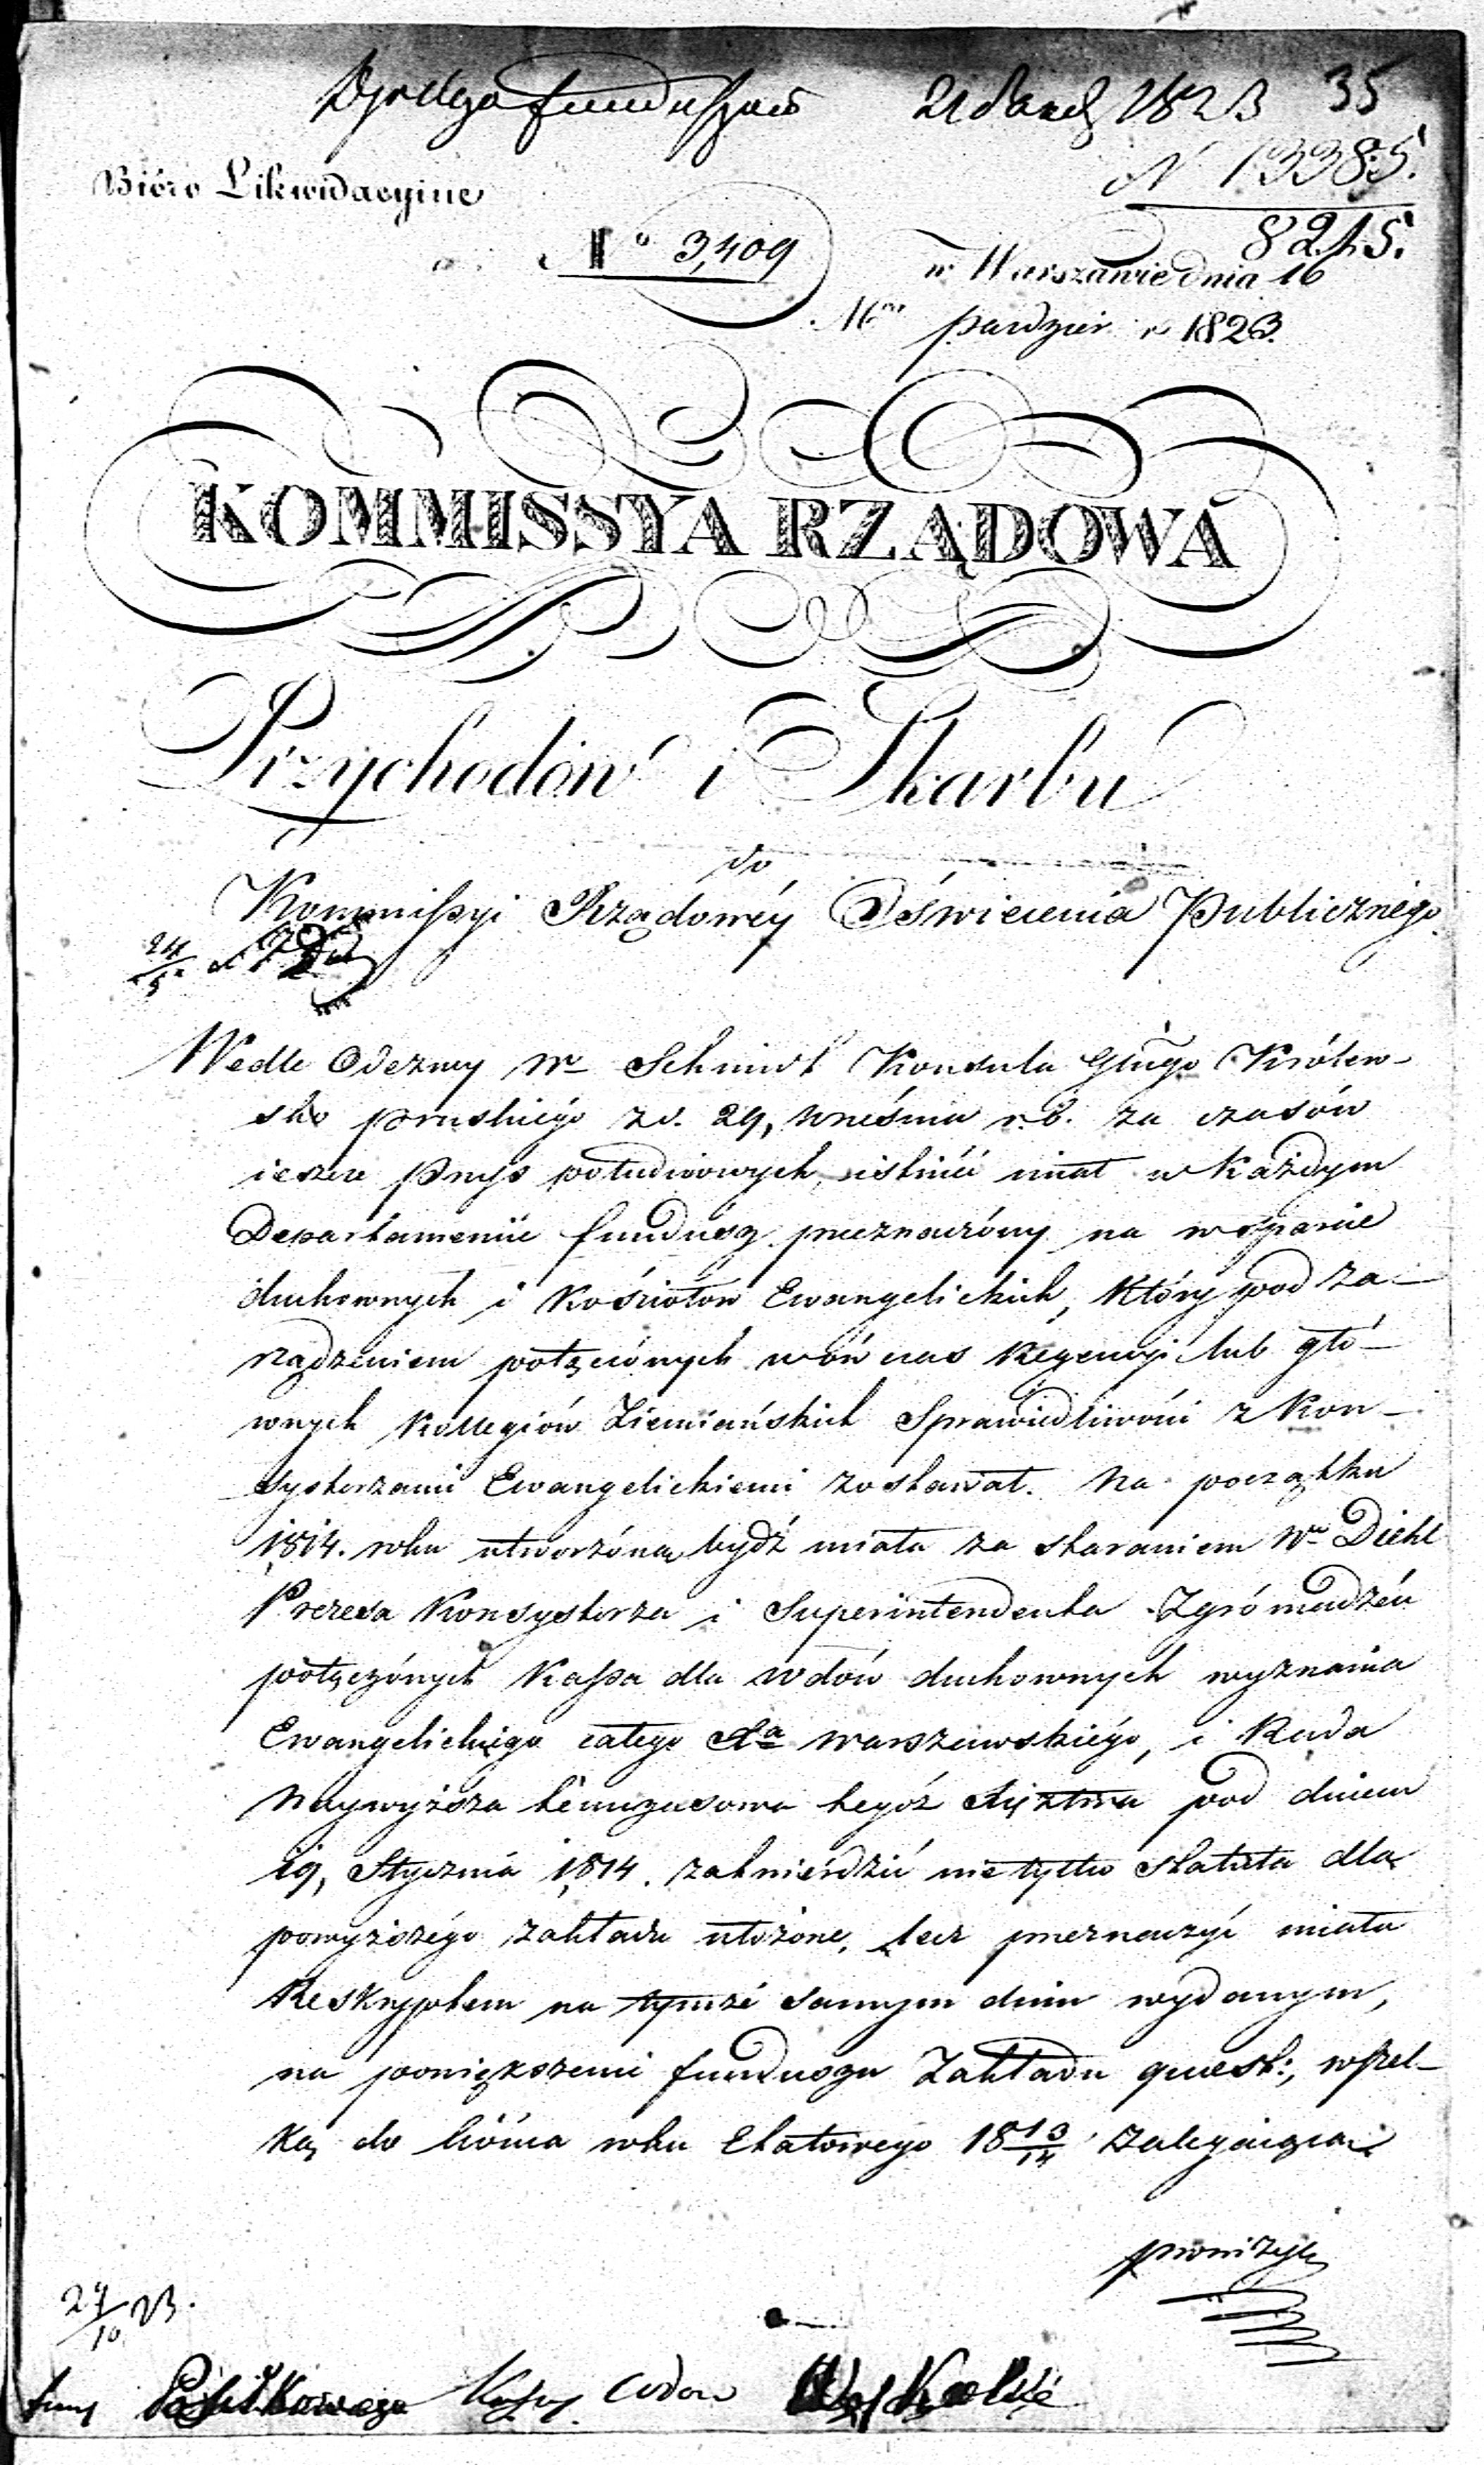 funduszów 1823 35
N 13385.
Bióro Likwidacyine
8215.
N° 3,409
w Warszawie dnia 16
Mca Paździer r 1823.
KOMMISSYA RZĄDOWA
Przychodów i Skarbu
do
Kommissyi Rządowéy Oświecenia Publicznégo
24
Wedle Odezwy Wo Schmidt Konsula Głngo Królew-
sko pruskiégo z d. 29, Września r. b. za czasów
ieszcze Prus południowych, istnieć miał w każdym
Departamencie fundusz przeznaczony na wsparcie
duchownych i Kościołów Ewangelickich, który pod za-
rządzeniem połączonych wówczas Regencyi lub głó-
wnych Kollegiów Ziemiańskich Sprawiedliwości z Kon-
systorzami Ewangelickiemi zostawał. Na początku
1814. roku utworzóna bydź miała za staraniem Wo Diehl
Prezesa Konsystorza i Superintendenta Zgrómadzeń
połączónych Kassa dla wdów duchownych wyznania
Ewangelickiego całego Xa warszawskiégo, i Rada
Naywyższa témczasowa tegóż Xięztwa pod dniem
19, Stycznia 1814. zatwierdzić nie tylko statuta dla
powyższégo zakładu ułożone, lecz przeznaczyć miała
Reskryptem na tymże samym dniu wydanym,
na powiększenie funduszu Zakładu quest:, wszel-
ką do kóńca roku Etatowego 18 13/14 zalegaiącą
prowizyę
24/10 23.
Kassy wdów